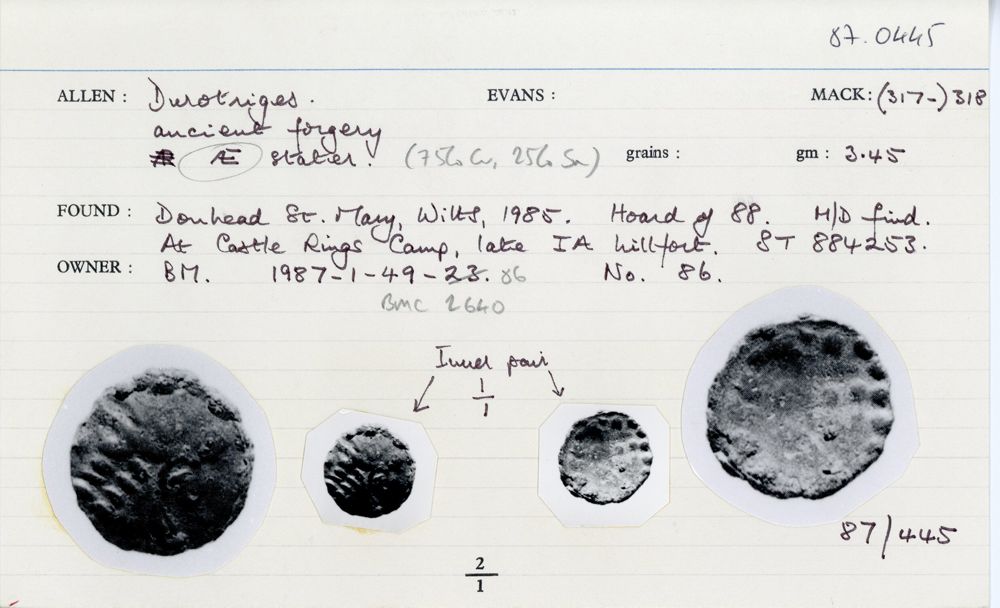 87.0445
ALLEN : Durotriges. EVANS : MACK: (317-) 318
ancient forgery
Æ stater. (75% Cu, 25% Sn) grains : gm : 3.45
FOUND : Donhead St. Mary, Wilts, 1985. Hoard of 88. M/D find.
At Castle Rings Camp, late IA hillfort. ST 884253.
OWNER : BM. 1987-1-49-23. 86 No. 86.
BMC 2640
Inner pair
1
1
87/445
2
1